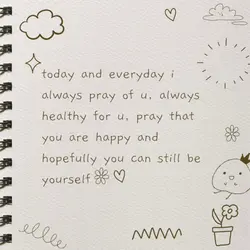 today and everyday i
always pray of u, always
healthy for u, pray that
you are happy and
hopefully you can still be
yourself